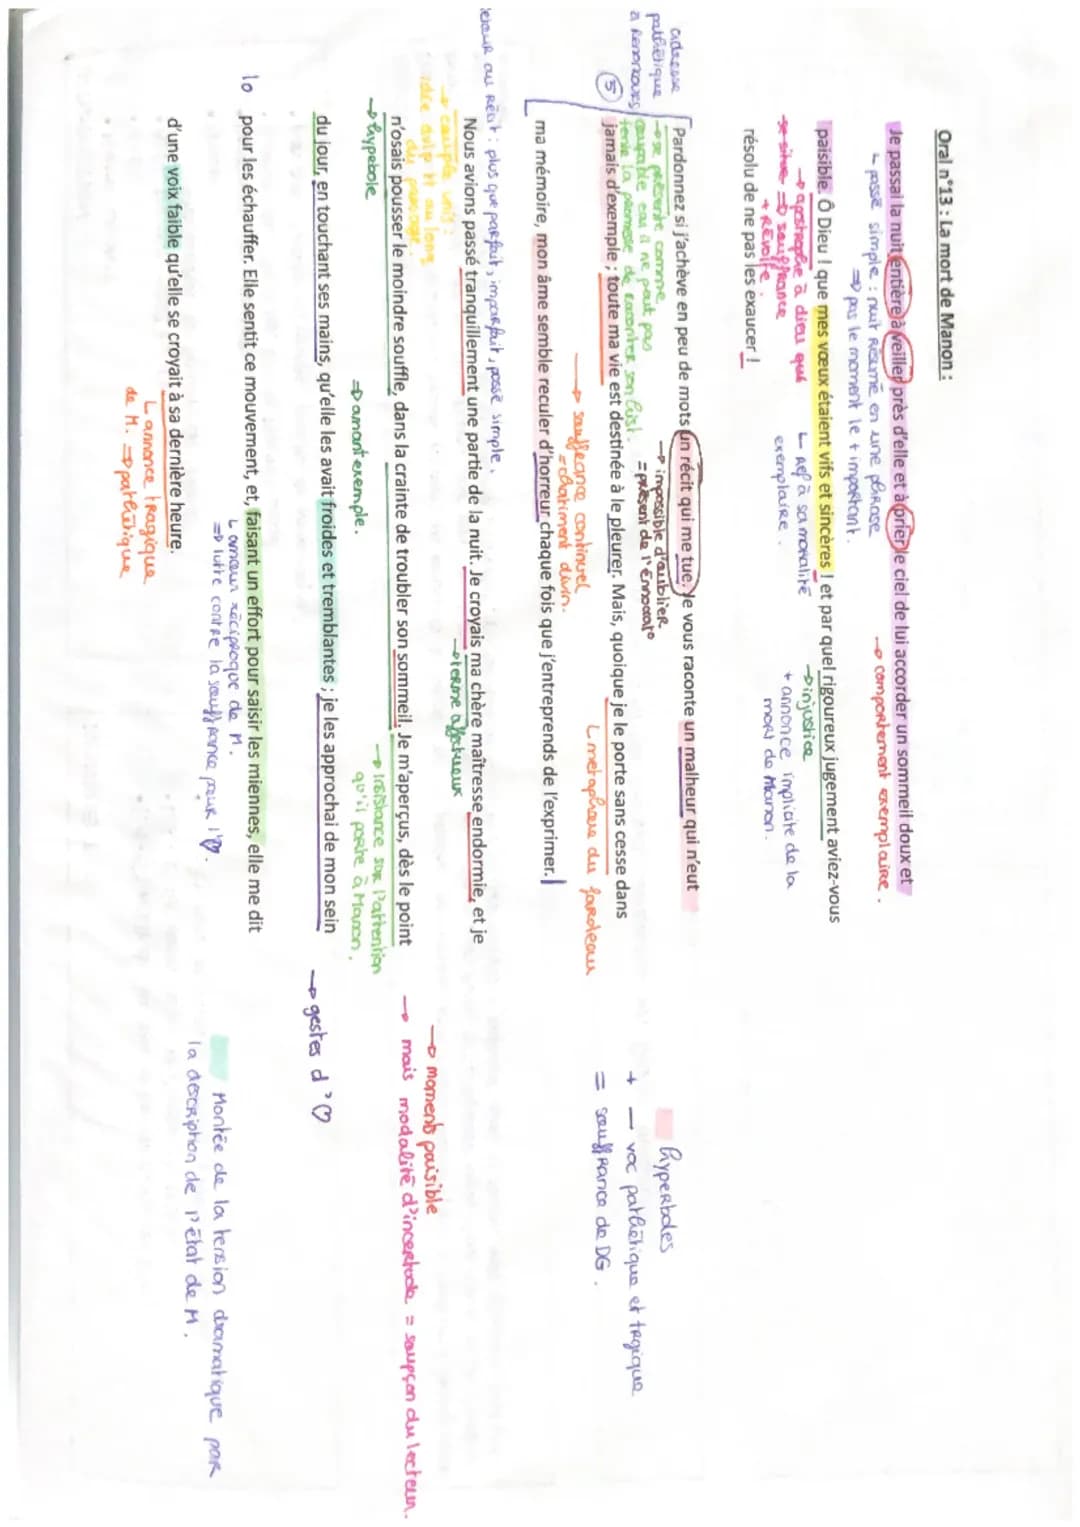 Oral n°13 : La mort de Manon :
Je passai la nuit entière à veiller près d'elle et à prier le ciel de lui accorder un sommeil doux et
↳ passé simple : nuit résumé en une phrase
⇒ pas le moment le + important.
→ comportement exemplaire.
paisible. Ô Dieu ! que mes vœux étaient vifs et sincères ! et par quel rigoureux jugement aviez-vous
→ apostrophe à dieu que
↳ Réf à sa moralité
exemplaire.
→ injustice
+ annonce implicite de la
mort de Manon.
⇒ souffrance
+ Révolte.
résolu de ne pas les exaucer !
adresse
pathétique
à Renoncours
Pardonnez si j'achève en peu de mots un récit qui me tue. Je vous raconte un malheur qui n'eut
→ se présente comme
coupable car il ne peut pas
tenir la promesse de raconter son hist
→ impossible d'oublier
= présent de l'énonciat°
5
jamais d'exemple ; toute ma vie est destinée à le pleurer. Mais, quoique je le porte sans cesse dans
→ souffrance continuel
= chatiment divin.
↳ métaphore du fardeau
ma mémoire, mon âme semble reculer d'horreur chaque fois que j'entreprends de l'exprimer.
hyperboles
+ — voc pathétique et tragique
= souffrance de DG.
retour au récit : plus que parfait, imparfait, passé simple.
Nous avions passé tranquillement une partie de la nuit. Je croyais ma chère maîtresse endormie, et je
→ couple uni :
→ terme affectueux
→ moments paisible
→ mais modalité d'incertude = soupçon du lecteur.
n'osais pousser le moindre souffle, dans la crainte de troubler son sommeil. Je m'aperçus, dès le point
→ hypebole
⇒ amant exemple.
→ insistance sur l'attention
qu'il porte à Manon.
du jour, en touchant ses mains, qu'elle les avait froides et tremblantes ; je les approchai de mon sein
→ gestes d'♡
10
pour les échauffer. Elle sentit ce mouvement, et, faisant un effort pour saisir les miennes, elle me dit
↳ amour réciproque de M.
⇒ lutte contre la souffrance pour l'♡.
Montée de la tension dramatique par
la description de l'état de M.
d'une voix faible qu'elle se croyait à sa dernière heure.
↳ annonce tragique
de M. ⇒ pathétique